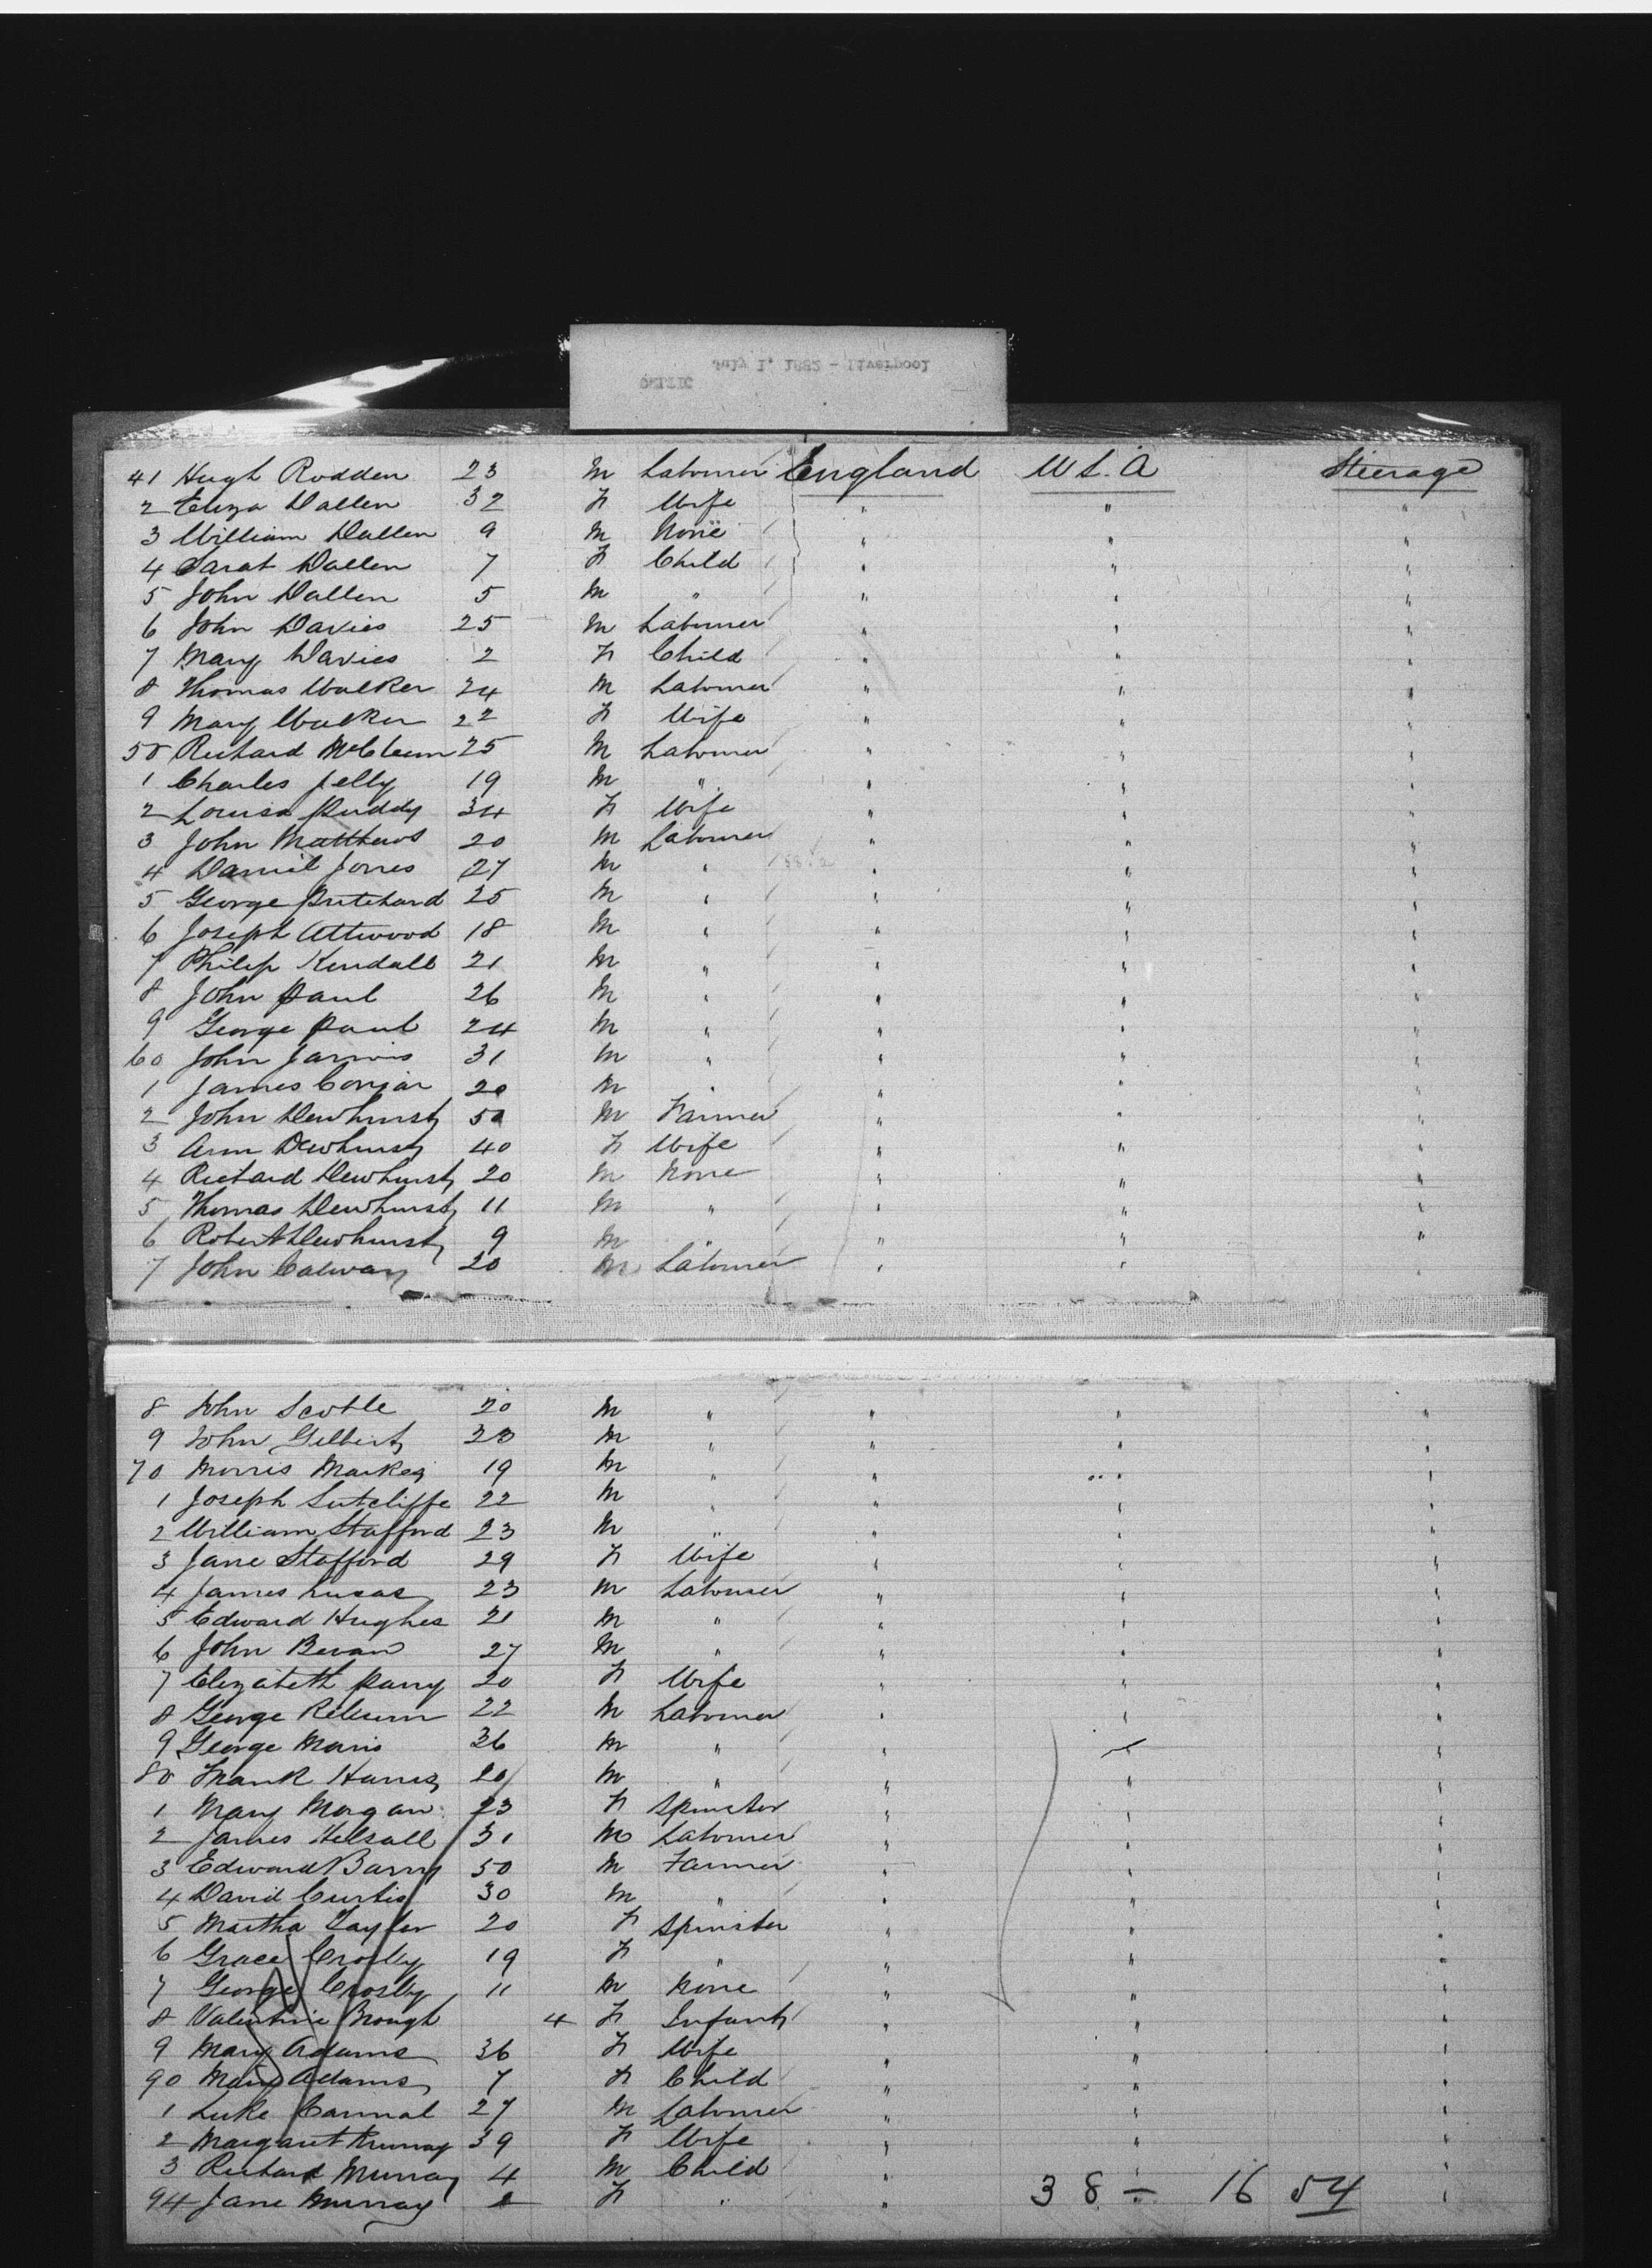 July 1, 1882 - Liverpool
CELTIC
41 Hugh Rodden 23 M Labourer England U S. A Steerage
2 Eliza Dallen 32 F Wife " " "
3 William Dallen 9 M None " " "
4 Sarah Dallen 7 F Child " " "
5 John Dallen 5 M " " " "
6 John Davies 25 M Labourer " " "
7 Mary Davies 2 F Child " " "
8 Thomas Walker 24 M Labourer " " "
9 Mary Walker 22 F Wife " " "
50 Richard 25 M Labourer " " "
1 Charles Jelly 19 M " " " "
2 Louisa Puddy 34 F Wife " " "
3 John Matthews 20 M Labourer " " "
4 Daniel Jones 27 M " " " "
5 George Pritchard 25 M " " " "
6 Joseph Attwood 18 M " " " "
7 Philip Kendall 21 M " " " "
8 John Paul 26 M " " " "
9 George Paul 24 M " " " "
60 John Jarvis 31 M " " " "
1 James 20 M " " " "
2 John Dewhurst 50 M Farmer " " "
3 Ann Dewhurst 40 F Wife " " "
4 Richard Dewhurst 20 M None " " "
5 Thomas Dewhurst 11 M " " " "
6 Robert Dewhurst 9 M " " " "
7 John 20 M Labourer " " "
8 John 20 M " " " "
9 John Gilbert 23 M " " " "
70 Morris 19 M " " " "
1 Joseph Sutcliffe 22 M " " " "
2 William Stafford 23 M " " " "
3 Jane Stafford 29 F Wife " " "
4 James Lucas 23 M Labourer " " "
5 Edward Hughes 21 M " " " "
6 John Bevan 27 M " " " "
7 Elizabeth Parry 20 F Wife " " "
8 George 22 M Labourer " " "
9 George 36 M " " " "
80 Frank 20 M " " " "
1 Mary Morgan 23 F Spinster " " "
2 James 31 M Labourer " " "
3 Edward Barry 50 M Farmer " " "
4 David Curtis 30 M " " " "
5 Martha Taylor 20 F Spinster " " "
6 Grace Crosby 19 F " " " "
7 George Crosby 11 M None " " "
8 Valentine Brough 4 F Infant " " "
9 Mary Adams 36 F Wife " " "
90 Mary Adams 7 F Child " " "
1 Luke 27 M Labourer " " "
2 Margaret Murray 39 F Wife " " "
3 Richard Murray 4 M Child " " "
94 Jane Murray F " " "
38 - 16 54